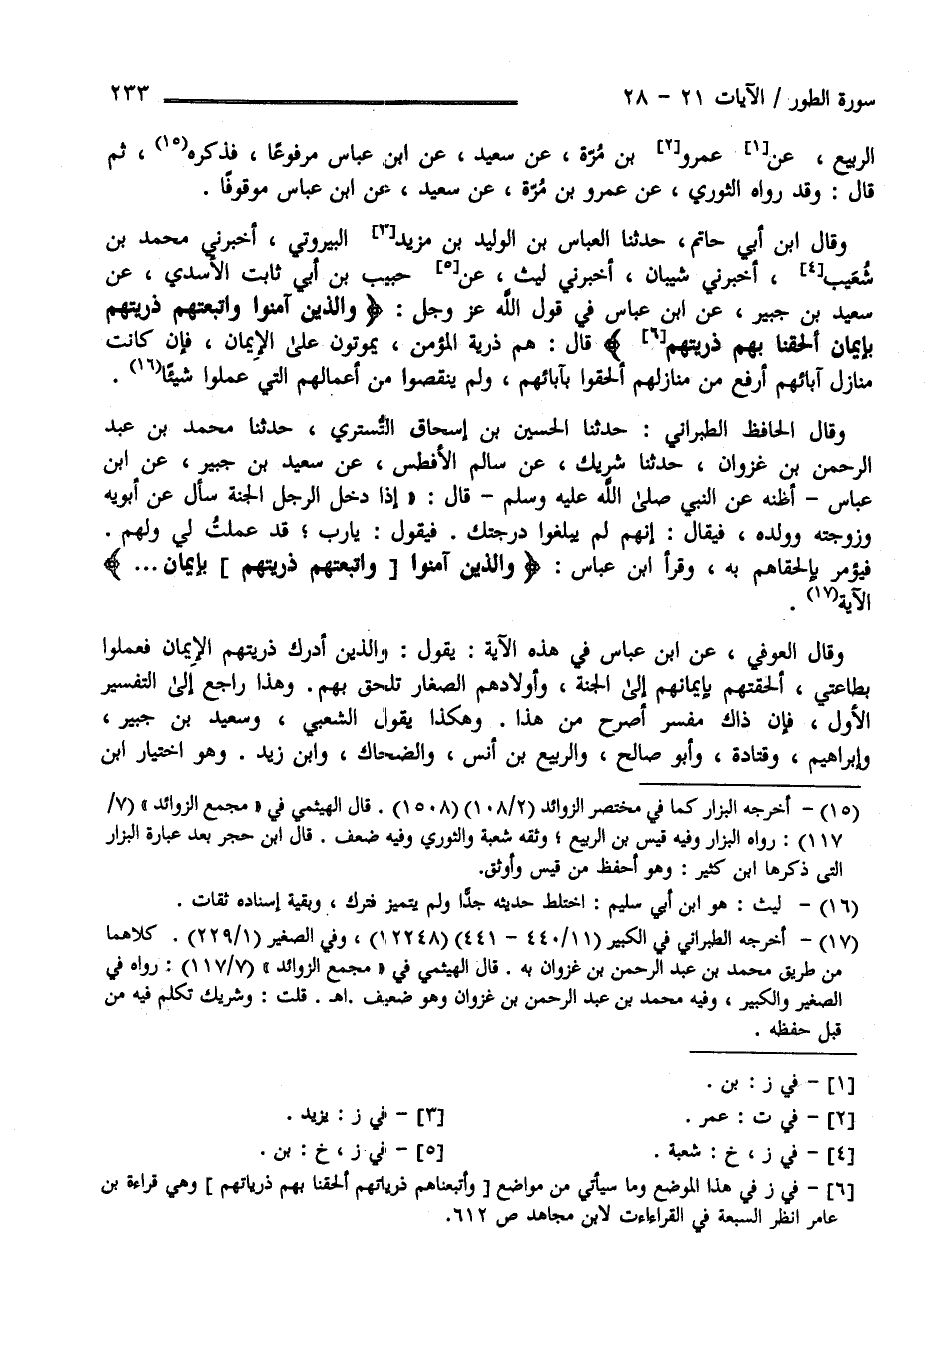 سورة الطور / الآيات ٢١ - ٢٨ ٢٣٣
الربيع ، عن[١] عمرو[٢] بن مُرّة ، عن سعيد ، عن ابن عباس مرفوعًا ، فذكره(١٥) ، ثم
قال : وقد رواه الثوري ، عن عمرو بن مُرّة ، عن سعيد ، عن ابن عباس موقوفًا .
وقال ابن أبي حاتم ، حدثنا العباس بن الوليد بن مزيد[٣] البيروتي ، أخبرني محمد بن
شُعَيب[٤] ، أخبرني شيبان ، أخبرني ليث ، عن[٥] حبيب بن أبي ثابت الأسدي ، عن
سعيد بن جبير ، عن ابن عباس في قول اللَّه عز وجل : ﴿ والذين آمنوا واتبعتهم ذريتهم
بإيمان ألحقنا بهم ذريتهم[٦] ﴾ قال : هم ذرية المؤمن ، يموتون علىٰ الإيمان ، فإن كانت
منازل آبائهم أرفع من منازلهم ألحقوا بآبائهم ، ولم ينقصوا من أعمالهم التي عملوا شيئًا(١٦) .
وقال الحافظ الطبراني : حدثنا الحسين بن إسحاق التُّستري ، حدثنا محمد بن عبد
الرحمن بن غزوان ، حدثنا شريك ، عن سالم الأفطس ، عن سعيد بن جبير ، عن ابن
عباس - أظنه عن النبي صلىٰ اللَّه عليه وسلم - قال : « إذا دخل الرجل الجنة سأل عن أبويه
وزوجته وولده ، فيقال : إنهم لم يبلغوا درجتك . فيقول : يارب ؛ قد عملتُ لي ولهم .
فيؤمر بإلحاقهم به ، وقرأ ابن عباس : ﴿ والذين آمنوا [ واتبعتهم ذريتهم ] بإيمان ... ﴾
الآية(١٧) .
وقال العوفي ، عن ابن عباس في هذه الآية : يقول : والذين أدرك ذريتهم الإيمان فعملوا
بطاعتي ، ألحقتهم بإيمانهم إلىٰ الجنة ، وأولادهم الصغار تلحق بهم. وهذا راجع إلىٰ التفسير
الأول ، فإن ذاك مفسر أصرح من هذا . وهكذا يقول الشعبي ، وسعيد بن جبير ،
وإبراهيم ، وقتادة ، وأبو صالح ، والربيع بن أنس ، والضحاك ، وابن زيد . وهو اختيار ابن
(١٥) - أخرجه البزار كما في مختصر الزوائد (١٠٨/٢) (١٥٠٨) . قال الهيثمي في « مجمع الزوائد » (٧/
١١٧) : رواه البزار وفيه قيس بن الربيع ؛ وثقه شعبة والثوري وفيه ضعف . قال ابن حجر بعد عبارة البزار
التى ذكرها ابن كثير : وهو أحفظ من قيس وأوثق.
(١٦) - ليث : هو ابن أبي سليم : اختلط حديثه جدًّا ولم يتميز فترك ، وبقية إسناده ثقات .
(١٧) - أخرجه الطبراني في الكبير (١١/ ٤٤٠ - ٤٤١) (١٢٢٤٨) ، وفي الصغير (٢٢٩/١) . كلاهما
من طريق محمد بن عبد الرحمن بن غزوان به . قال الهيثمي في « مجمع الزوائد » (١١٧/٧) : رواه في
الصغير والكبير ، وفيه محمد بن عبد الرحمن بن غزوان وهو ضعيف .اهـ . قلت : وشريك تكلم فيه من
قبل حفظه .
[١] - في ز : بن .
[٢] - في ت : عمر . [٣] - في ز : يزيد .
[٤] - في ز ، خ : شعبة . [٥] - في ز ، خ : بن .
[٦] - في ز في هذا الموضع وما سيأتي من مواضع [ وأتبعناهم ذرياتهم ألحقنا بهم ذرياتهم ] وهي قراءة بن
عامر انظر السبعة في القراءات لابن مجاهد ص ٦١٢.